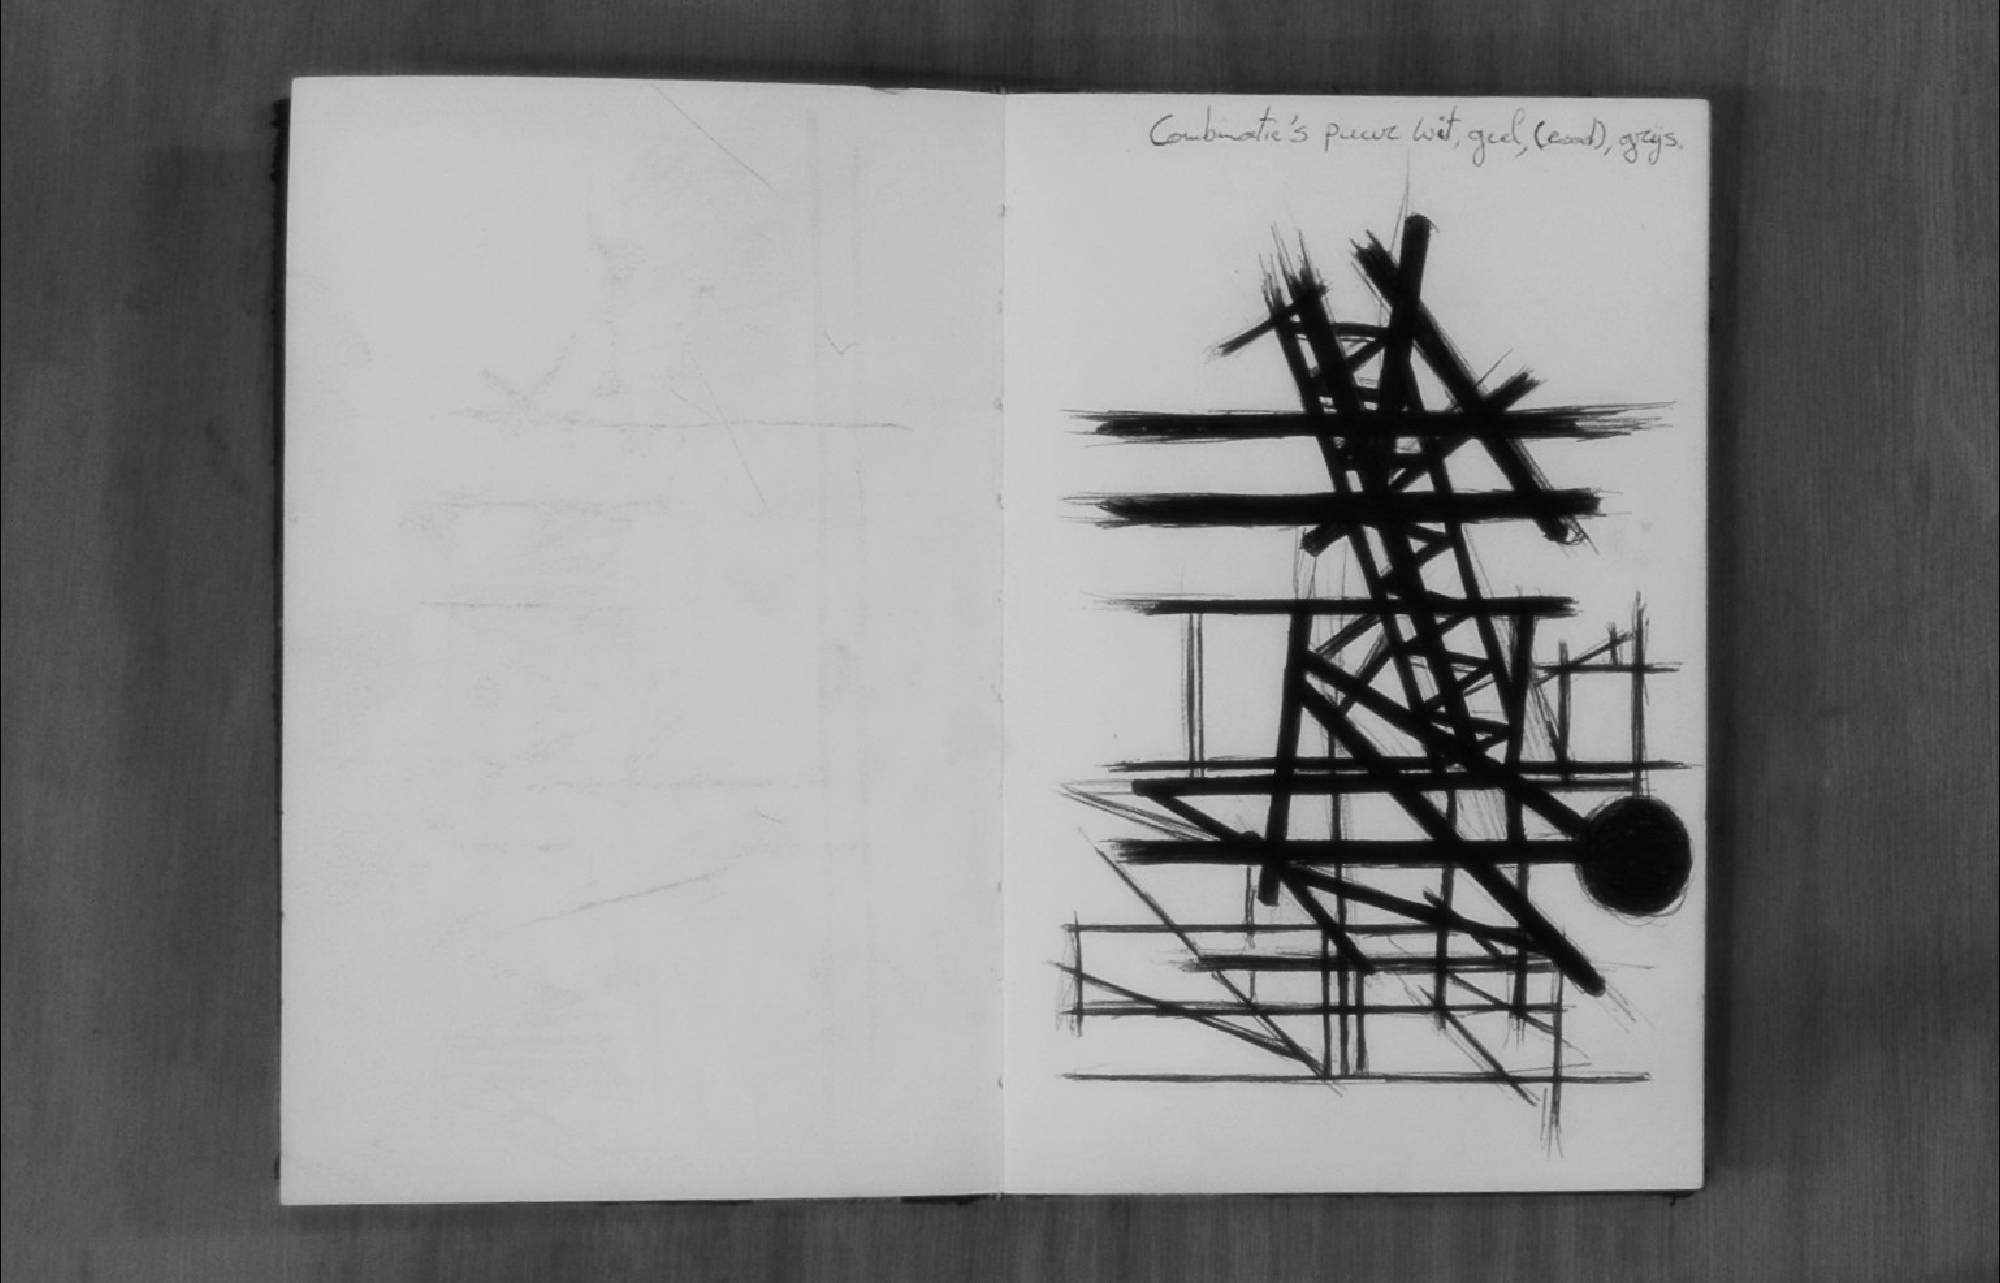 Combinatie's puur wit, geel, (rood), grijs.